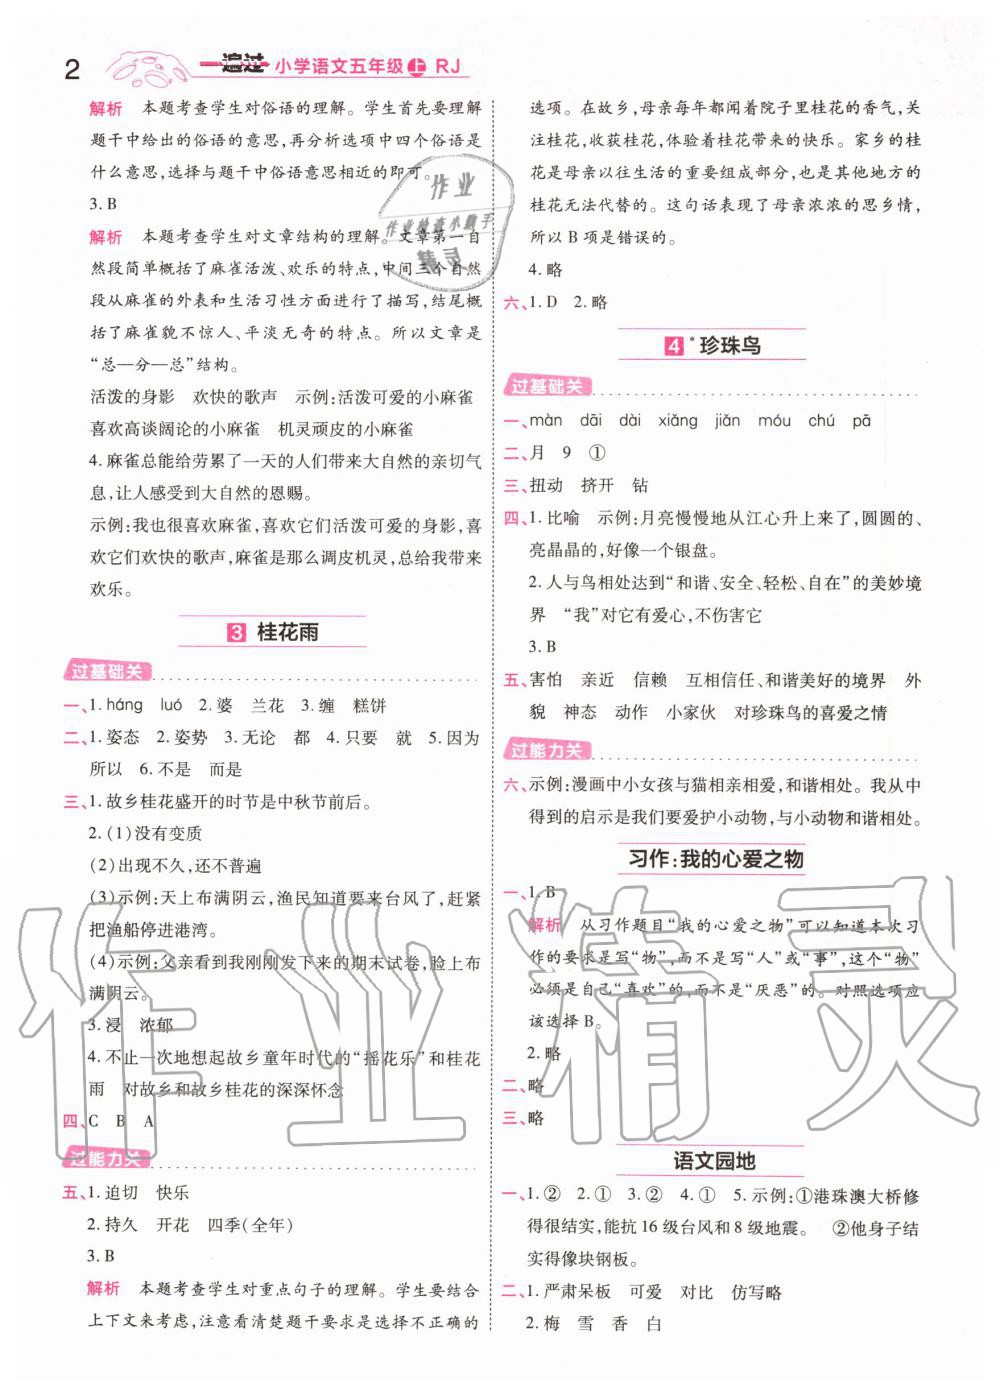 2
一遍过 小学语文五年级 上 RJ
解析 本题考查学生对俗语的理解。学生首先要理解
题干中给出的俗语的意思,再分析选项中四个俗语是
什么意思,选择与题干中俗语意思相近的即可。
3. B
解析 本题考查学生对文章结构的理解。文章第一自
然段简单概括了麻雀活泼、欢乐的特点,中间三个自然
段从麻雀的外表和生活习性方面进行了描写,结尾概
括了麻雀貌不惊人、平淡无奇的特点。所以文章是
“总—分—总”结构。
活泼的身影 欢快的歌声 示例:活泼可爱的小麻雀
喜欢高谈阔论的小麻雀 机灵顽皮的小麻雀
4. 麻雀总能给劳累了一天的人们带来大自然的亲切气
息,让人感受到大自然的恩赐。
示例:我也很喜欢麻雀,喜欢它们活泼可爱的身影,喜
欢它们欢快的歌声,麻雀是那么调皮机灵,总给我带来
欢乐。
3 桂花雨
过基础关
一、1. háng luó 2. 婆 兰花 3. 缠 糕饼
二、1. 姿态 2. 姿势 3. 无论 都 4. 只要 就 5. 因为
所以 6. 不是 而是
三、1. 故乡桂花盛开的时节是中秋节前后。
2. (1)没有变质
(2)出现不久,还不普遍
(3)示例:天上布满阴云,渔民知道要来台风了,赶紧
把渔船停进港湾。
(4)示例:父亲看到我刚刚发下来的期末试卷,脸上布
满阴云。
3. 浸 浓郁
4. 不止一次地想起故乡童年时代的“摇花乐”和桂花
雨 对故乡和故乡桂花的深深怀念
四、C B A
过能力关
五、1. 迫切 快乐
2. 持久 开花 四季(全年)
3. B
解析 本题考查学生对重点句子的理解。学生要结合
上下文来考虑,注意看清楚题干要求是选择不正确的
选项。在故乡,母亲每年都闻着院子里桂花的香气,关
注桂花,收获桂花,体验着桂花带来的快乐。家乡的桂
花是母亲以往生活的重要组成部分,也是其他地方的
桂花无法代替的。这句话表现了母亲浓浓的思乡情,
所以 B 项是错误的。
4. 略
六、1. D 2. 略
4 * 珍珠鸟
过基础关
一、màn dāi dài xiǎng jiǎn móu chú pā
二、月 9 ①
三、扭动 挤开 钻
四、1. 比喻 示例:月亮慢慢地从江心升上来了,圆圆的、
亮晶晶的,好像一个银盘。
2. 人与鸟相处达到“和谐、安全、轻松、自在”的美妙境
界 “我”对它有爱心,不伤害它
3. B
五、害怕 亲近 信赖 互相信任、和谐美好的境界 外
貌 神态 动作 小家伙 对珍珠鸟的喜爱之情
过能力关
六、示例:漫画中小女孩与猫相亲相爱,和谐相处。我从中
得到的启示是我们要爱护小动物,与小动物和谐相处。
习作:我的心爱之物
一、1. B
解析 从习作题目“我的心爱之物”可以知道本次习
作的要求是写“物”,而不是写“人”或“事”,这个“物”
必须是自己“喜欢”的,而不是“厌恶”的。对照选项应
该选择 B。
2. 略
二、略
三、略
语文园地
一、1. ② 2. ① 3. ② 4. ① 5. 示例:①港珠澳大桥修
得很结实,能抗 16 级台风和 8 级地震。 ②他身子结
实得像块钢板。
二、1. 严肃呆板 可爱 对比 仿写略
2. 梅 雪 香 白
作业
作业检查小助手
精灵
作业精灵